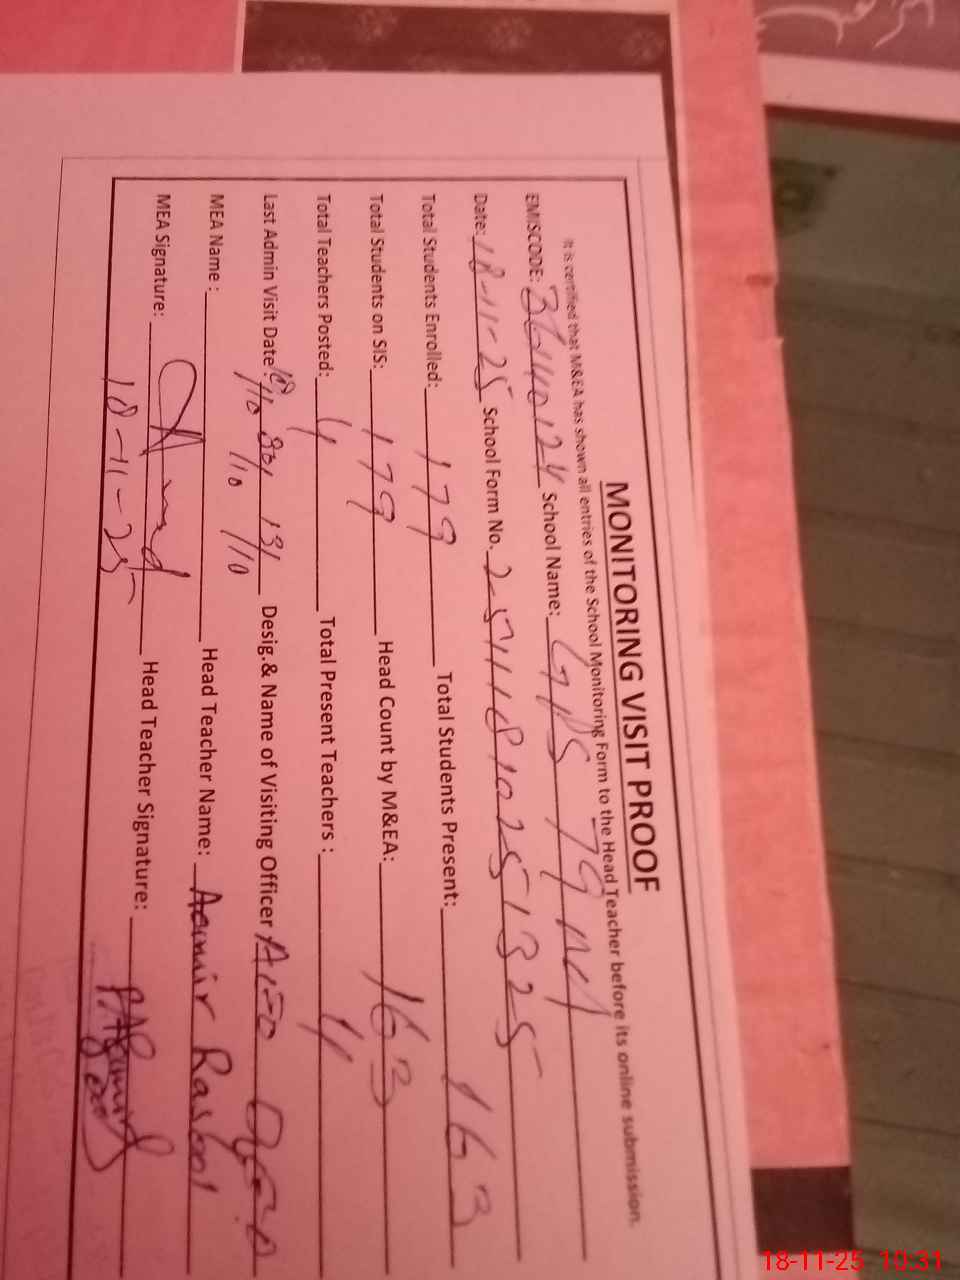 MONITORING VISIT PROOF
It is certified that M&EA has shown all entries of the School Monitoring Form to the Head Teacher before its online submission.
EMISCODE: 36440124 School Name: GPS 79 M
Date: 18-11-25 School Form No. 2511181025 1325
Total Students Enrolled: 179 Total Students Present: 163
Total Students on SIS: 179 Head Count by M&EA: 163
Total Teachers Posted: 4 Total Present Teachers : 4
Last Admin Visit Date: 18/10 30/10 13/10 Desig.& Name of Visiting Officer AEO
MEA Name : Head Teacher Name: Aamir Rasool
MEA Signature: Head Teacher Signature:
18-11-25
18-11-25 10:31